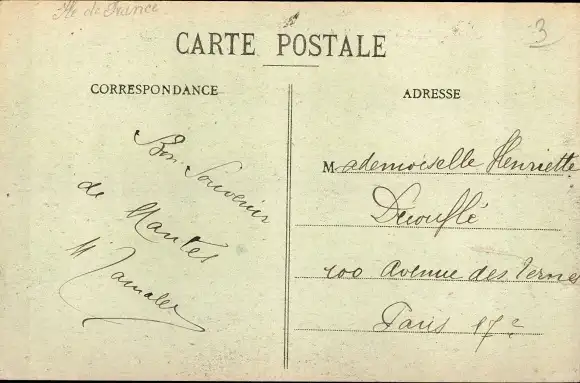 Ile de France
3
CARTE POSTALE
CORRESPONDANCE
Bon Souvenir
de Nantes
ADRESSE
Mademoiselle Henriette
Décuflé
100 Avenue des Ternes
Paris 17e